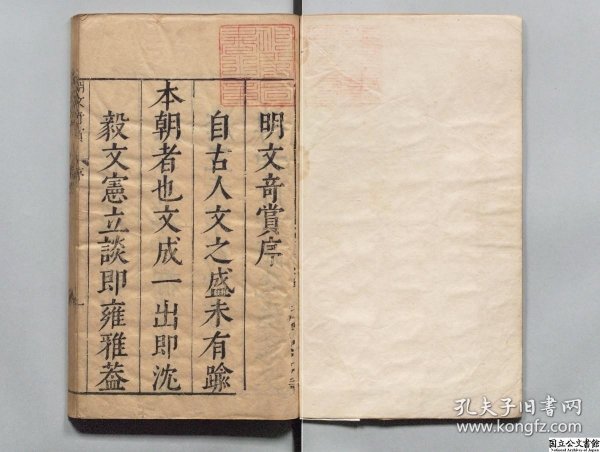 明文竒賞序
自古人文之盛未有踰
本朝者也文成一出即沈
毅文憲立談即雍雅葢
孔夫子旧书网
www.kongfz.com
国立公文書館
National Archives of Japan